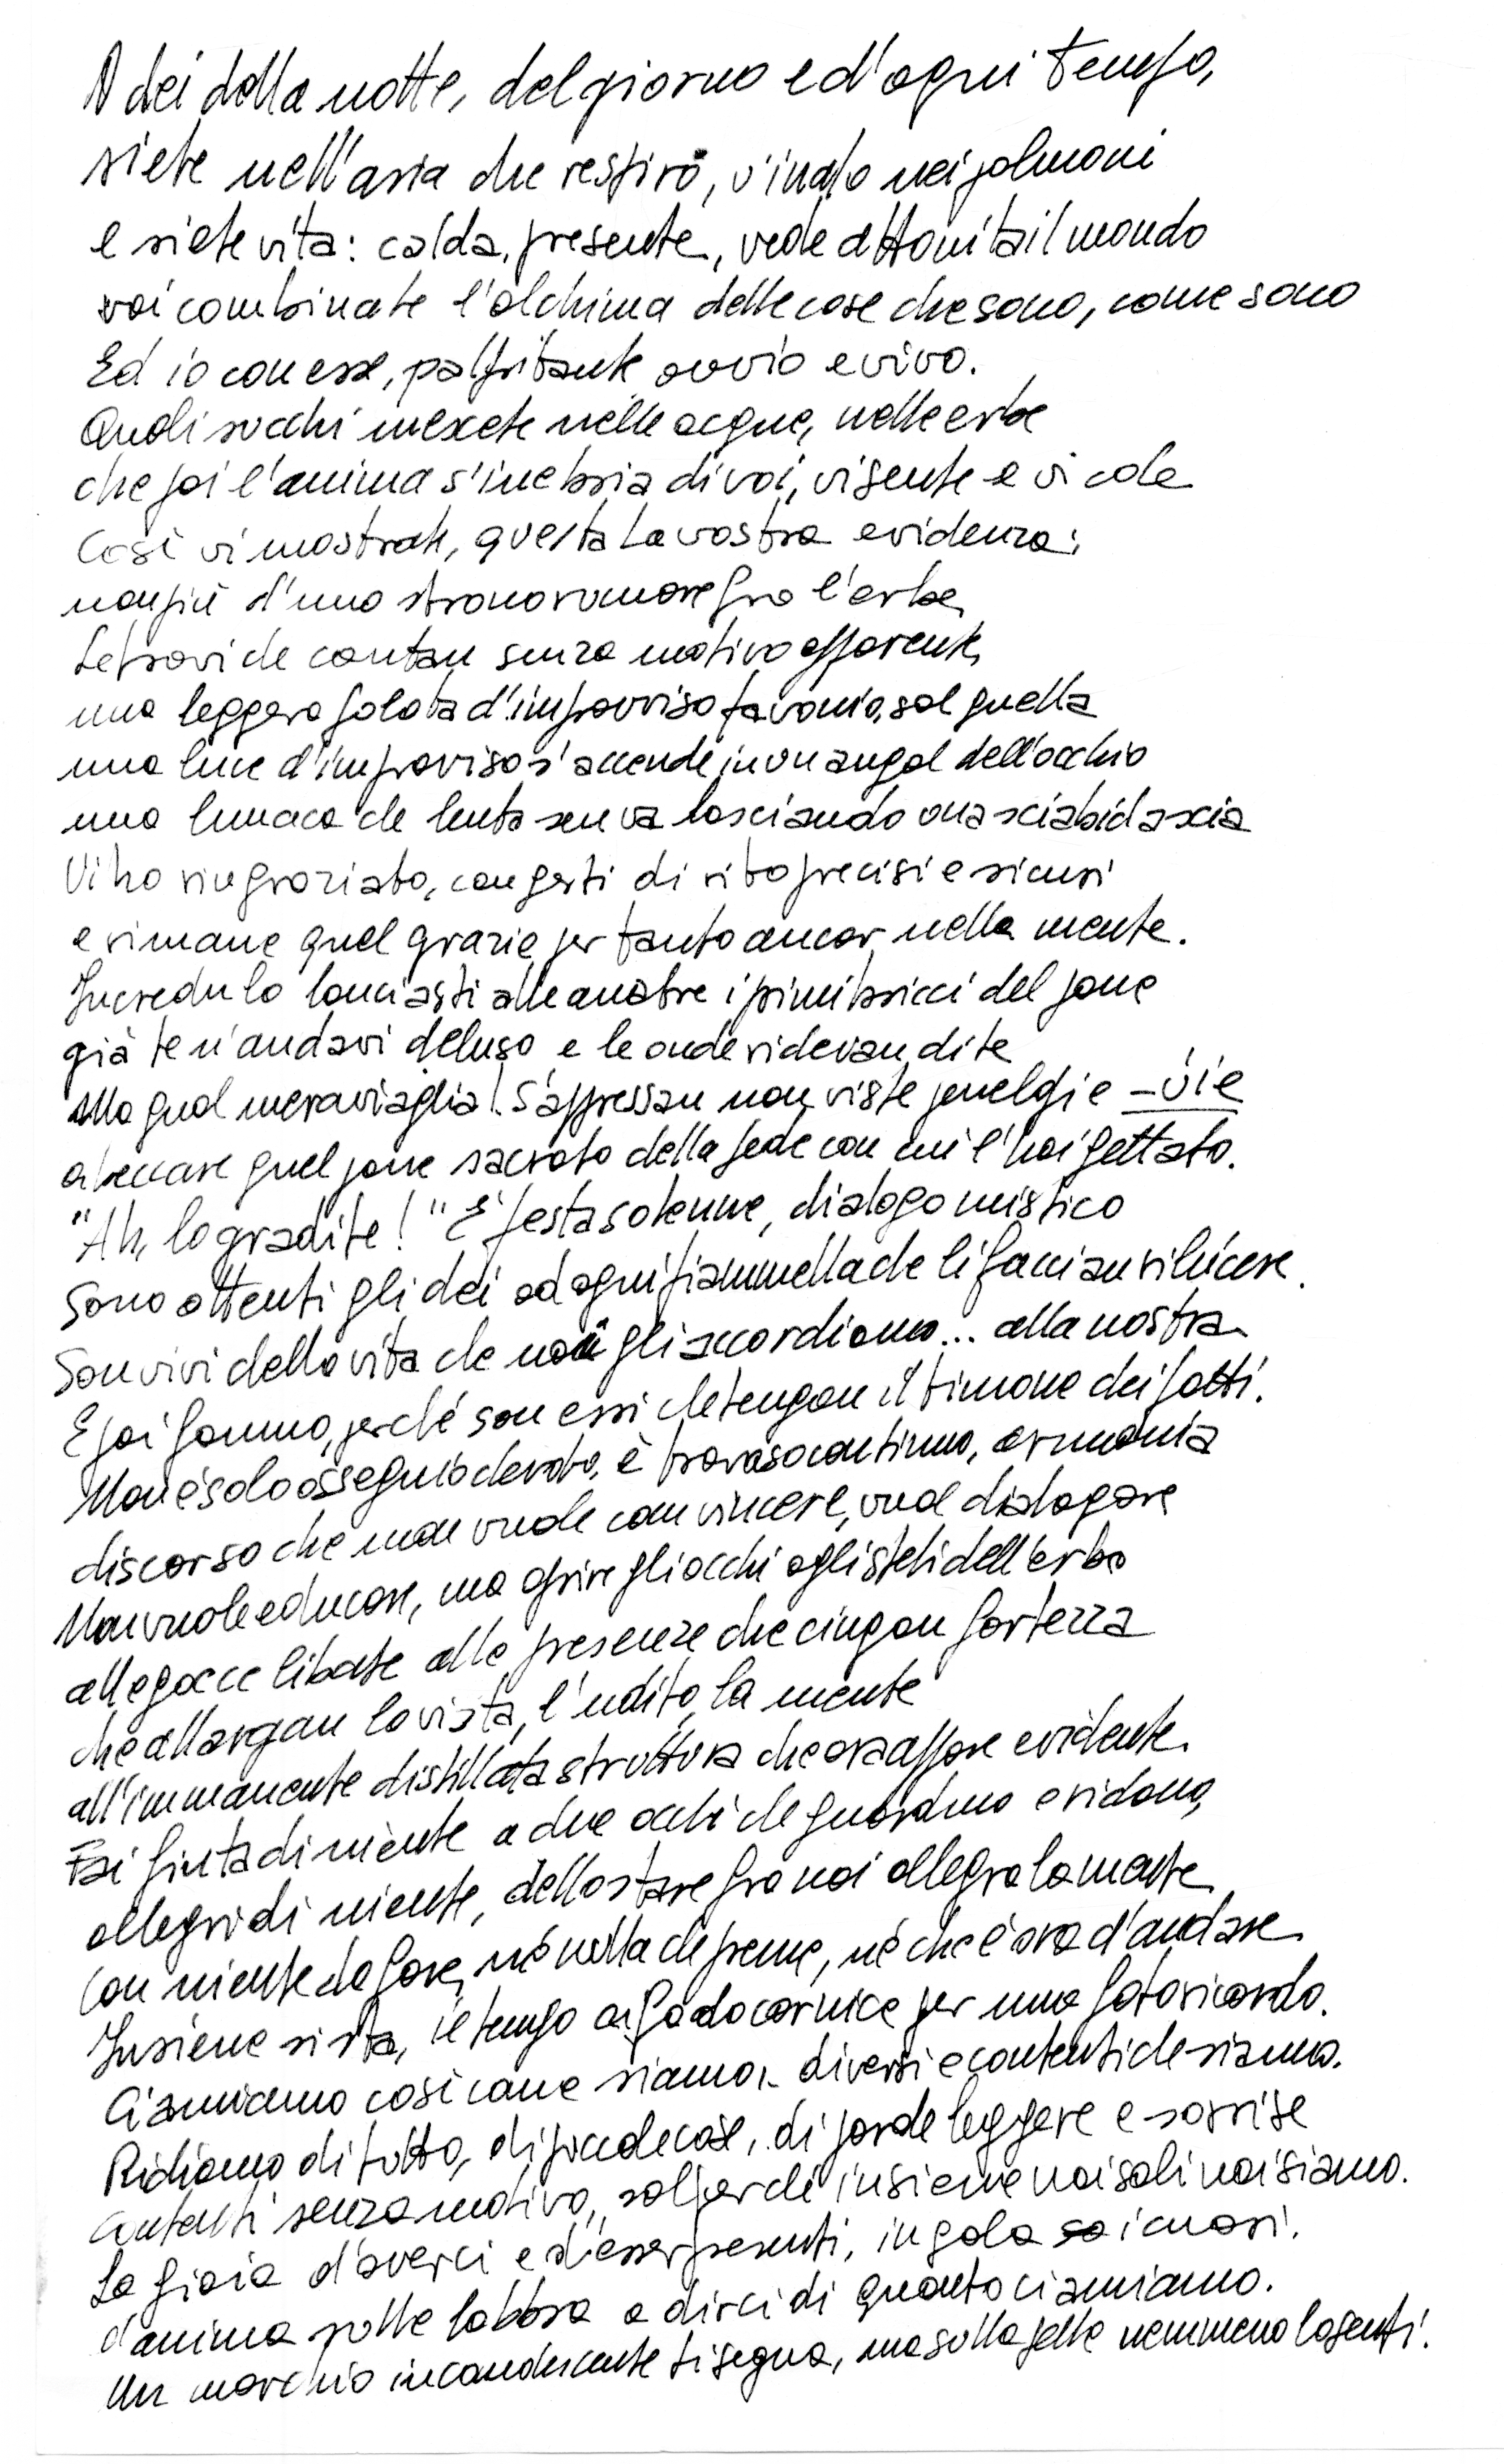 O dei della notte, del giorno e d'ogni tempo,
siete nell'aria che respiro, v'inalo nei polmoni
e siete vita: calda, presente, vede attonita il mondo
voi combinate l'alchima delle cose che sono, come sono
Ed io con esse, palpitante ovvio e vivo.
Quali succhi mescete nelle acque, nelle erbe
che poi l'anima s'inebria di voi, vi sente e vi cole
Così vi mostrate, questa la vostra evidenza:
non più d'uno strano rumore fra l'erbe,
le travi che cantan senza motivo apparente,
una leggera folata d'improvviso favonio, sol quella
una luce d'improvviso s'accende in un angol dell'occhio
una lumaca che lenta sen va lasciando una scia bidascia
Vi ho ringraziato, con gesti di rito precisi e sicuri
e rimane quel grazie per tanto ancor nella mente.
Incredulo lanciasti alle anatre i primi bricci del pane
già te n'andavi deluso e le onde ridevan di te
Ma qual meraviaglia! S'appressan non viste penelgi e - v'è
a beccare quel pane sacrato della fede con cui l'hai gettato.
"Ah, lo gradite!" È festa solenne, dialogo mistico
Sono attenti gli dei ad ogni fiammella che li faccian rilucere.
Son vivi della vita che noi gli accordiamo... alla nostra
E poi fanno, perché son essi che tengon il timone dei fatti.
Non è solo ossequio devoto, è travaso continuo, armonia
discorso che non vuole convincere, vuol dialogare
Non vuole educare, ma aprire gli occhi agli steli dell'erba
alle gocce libate alle presenze che cingon fortezza
che allargan la vista, l'udito, la mente
all'immanente distillata struttura che ora appare evidente.
Fai finta di niente a due occhi che guardano e ridono,
allegri di niente, dello stare fra noi allegra la mente
Con niente da fare, né nulla che preme, né che è ora d'andare
Insieme si sta, il tempo ci fa da cornice per una foto ricordo.
Ci amiamo così come siamo, diversi e contenti che siamo.
Ridiamo di tutto, di piccole cose, di parole leggere e sorrise
contenti senza motivo, sol perché insieme noi soli noi siamo.
La gioia d'averci e d'esser presenti, in gola i cuori.
d'anima sulle labbra a dirci di quanto ci amiamo.
Un marchio incandescente ti segna, ma sulla pelle nemmeno lo senti.